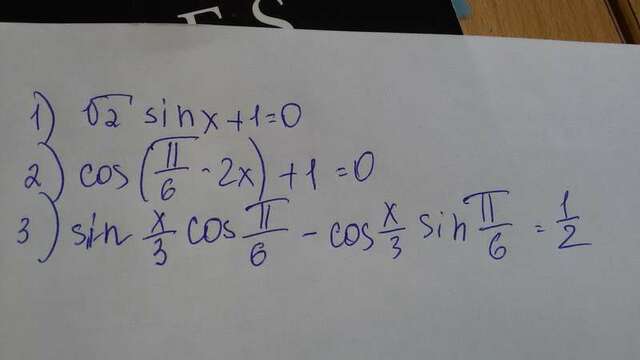 ES
1) √2 sinx+1=0
2) cos(π/6 - 2x) +1 =0
3) sin x/3 cos π/6 - cos x/3 sin π/6 = 1/2